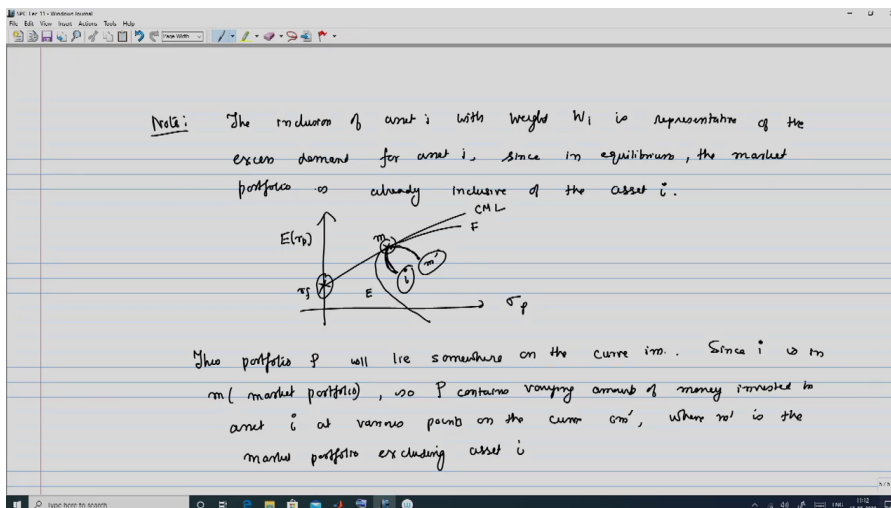 SPC Lec 11 - Windows Journal
File Edit View Insert Actions Tools Help
Page Width
Note: The inclusion of asset i with weight W1 is representative of the
excess demand for asset i, since in equilibrium, the market
portfolio is already inclusive of the asset i.
CML
F
E(rp)
m
m'
i
rf
E
σp
This portfolio P will lie somewhere on the curve im. Since i is in
m (market portfolio), so P contains varying amounts of money invested in
asset i at various points on the curve im', where m' is the
market portfolio excluding asset i
5/5
Type here to search
ENG
11:12